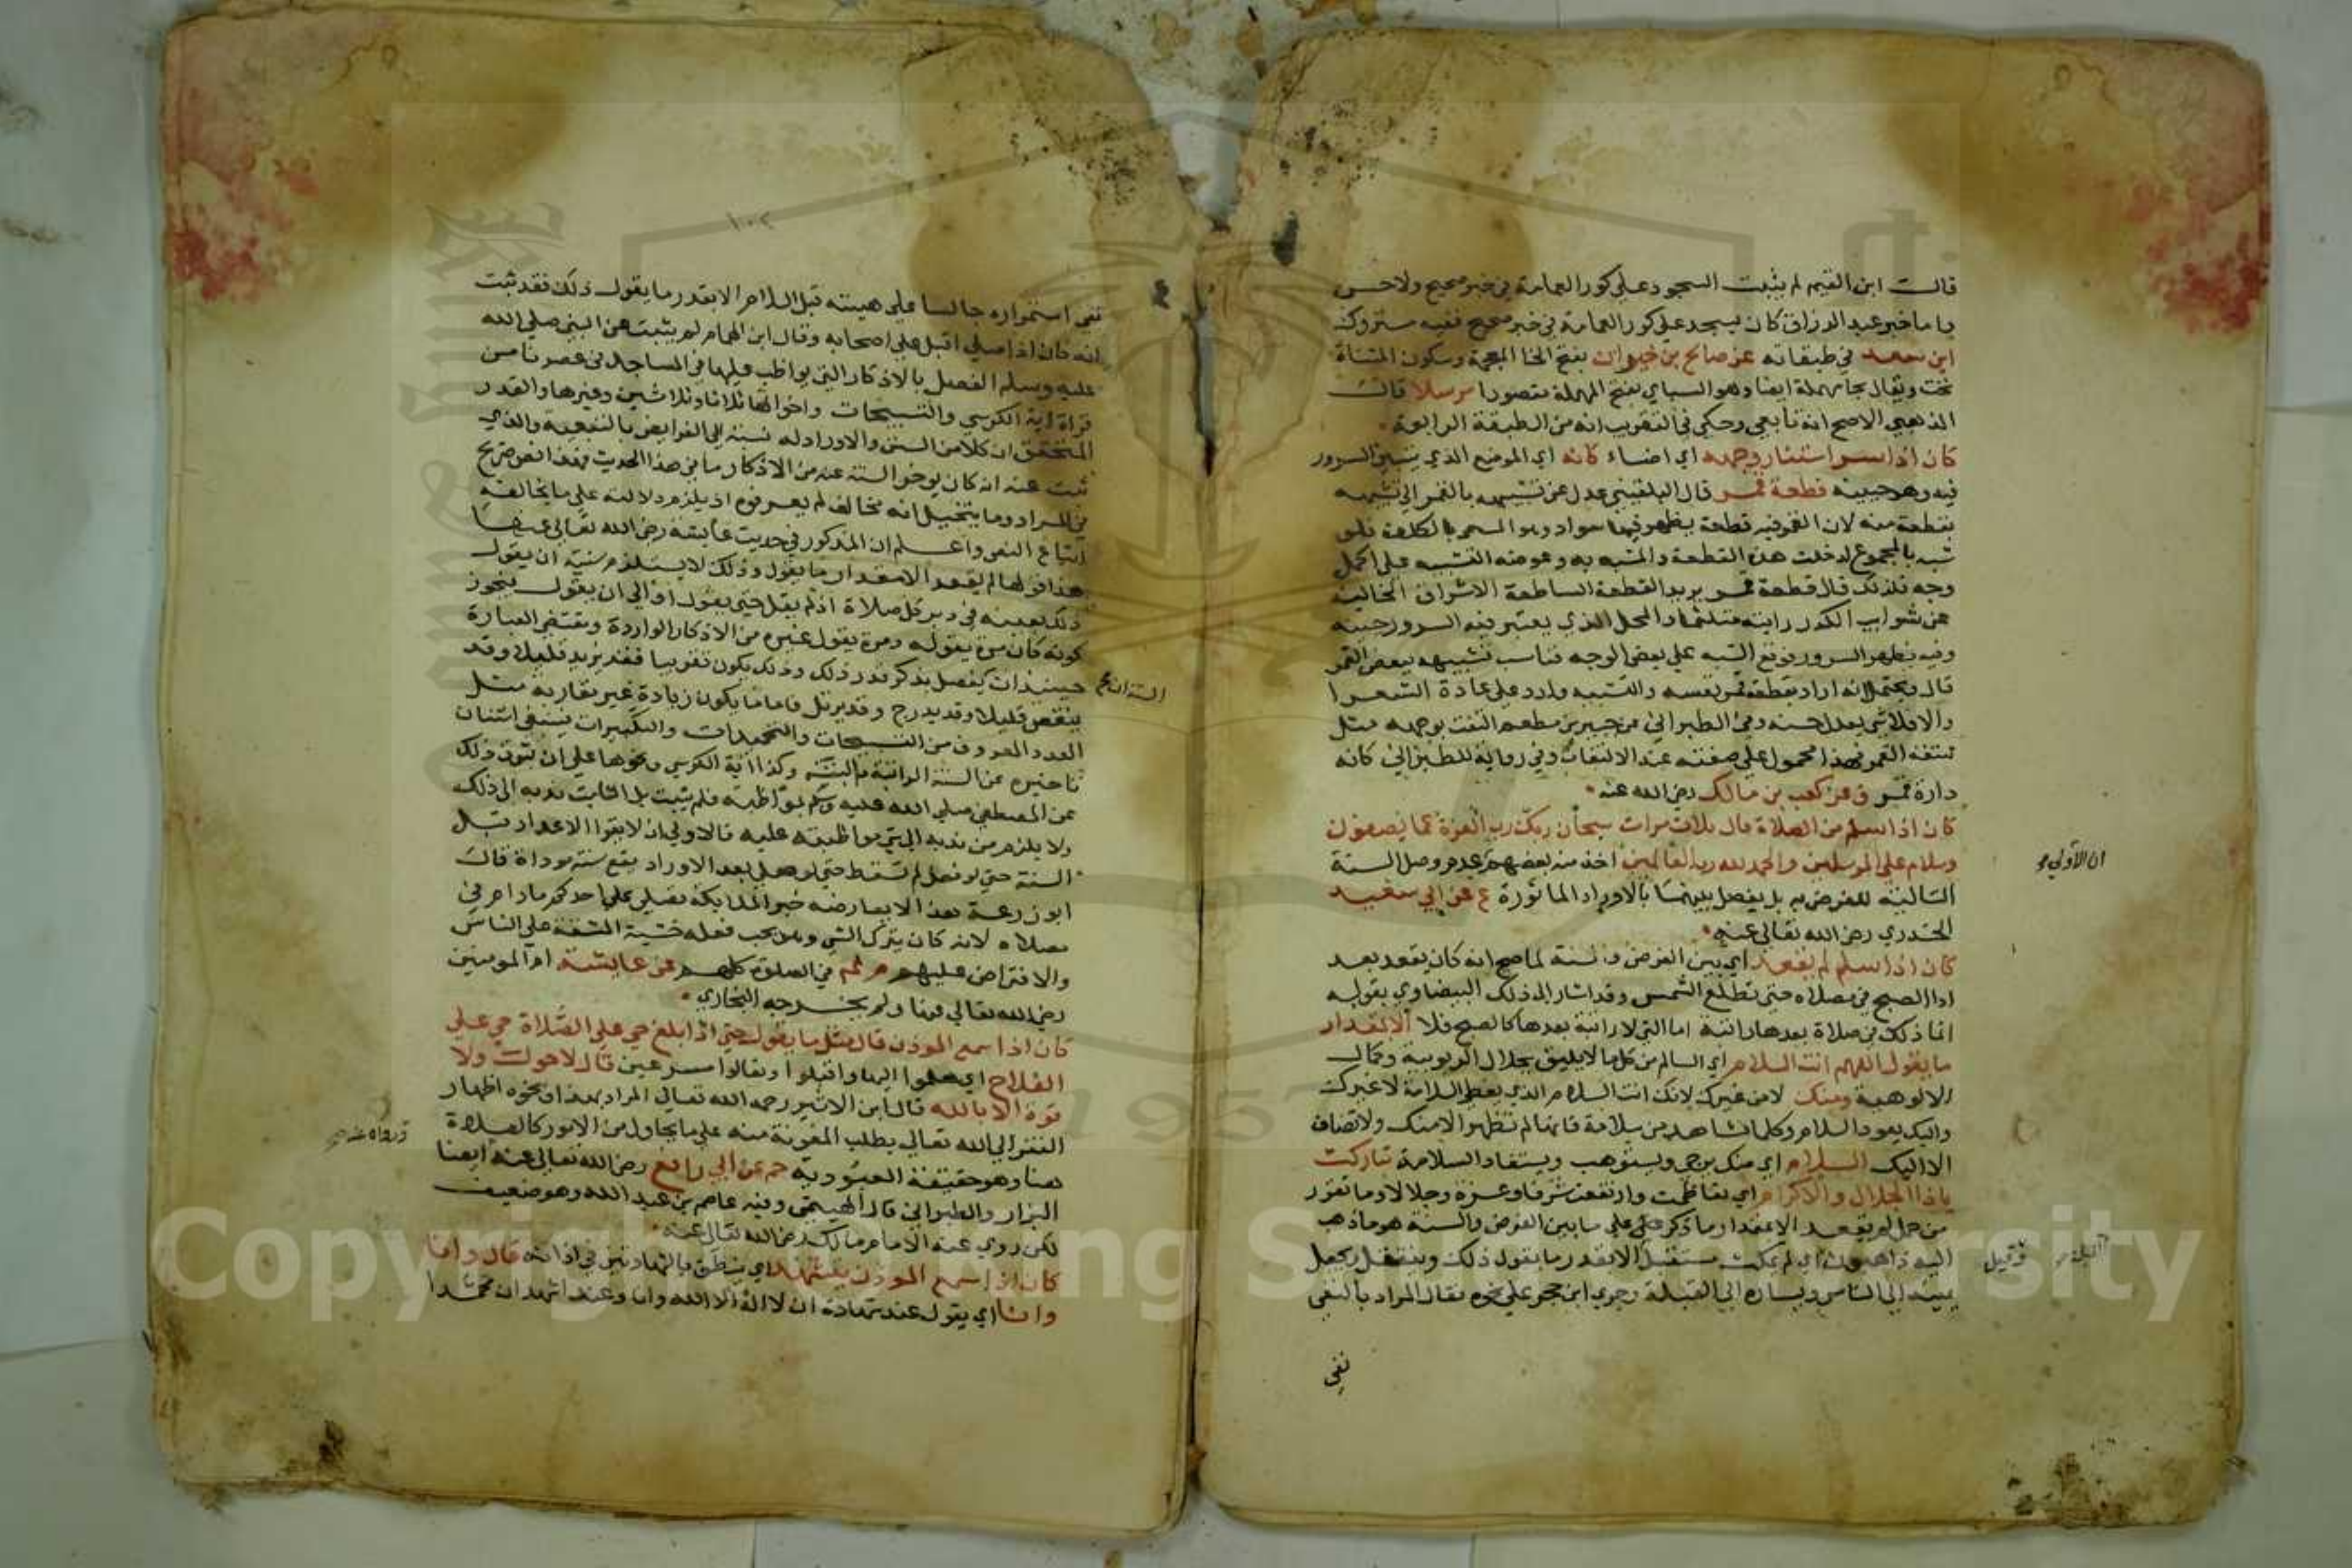 قالت ابن القيم لم يثبت السجود على كور العمامة في خبر صحيح ولا حسن
واما خبر عبد الرزاق كان يسجد على كور العمامة في خبر صحيح ففيه متروك
ابن سعد في طبقاته عن صالح بن خيوان بفتح الخا المعجمة وسكون المثناة
تحت ويقال بحا مهملة ايضا وهو السباي بفتح المهملة مقصورا مرسلا قالت
الذهبي الاصح انه تابعي وحكي في التقريب انه من الطبقة الرابعة
كان اذا سر استنار وجهه اي اضاء كانه اي الموضع الذي يتبين السرور
فيه وهو جبينه قطعة قمر قال البلقيني عدل عن تشبيهه بالقمر الي تشبيهه
بقطعة منه لان القمر فيه قطعة يظهر فيها سواد وهو المسمي بالكلف فلو
شبه بالمجموع لدخلت هذه القطعة والمشبه به وعوضه التشبيه علي اكمل
وجه فلذلك قال قطعة قمر يريد القطعة الساطعة الاشراق الخالية
عن شوايب الكدر راينه متلثما والمحل الذي يعتبر فيه السرور جبينه
وفيه يظهر السرور فوقع الشبه علي بعض الوجه فناسب تشبيهه ببعض القمر
قال ويحتمل انه اراد بقطعة قمر نفسه والتشبيه وارد علي عادة الشعرا
والا فلا شي يعدل حسنه وفي الطبراني عن جبير بن مطعم التفت بوجهه مثل
شقة القمر فهذا محمول علي صفته عند الالتفات وفي رواية للطبراني كانه
دارة قمر ق عن كعب بن مالك رضي الله عنه
كان اذا سلم من الصلاة قال ثلاث مرات سبحان ربك رب العزة عما يصفون
وسلام علي المرسلين والحمد لله رب العالمين اخذ منه بعضهم عدم وصل السنة
التالية للفرض به بل يفصل بينهما بالاوراد الماثورة ع عن ابي سعيد
الخدري رضي الله تعالي عنه
كان اذا سلم لم يقعد اي بين الفرض والسنة لما صح انه كان يقعد بعد
اداا الصبح في مصلاه حتي تطلع الشمس وقد اشار الي ذلك البيضاوي بقوله
انما ذلك في صلاة بعدها راتبة اما التي لا راتبة بعدها كالصبح فلا الا بمقدار
ما يقول اللهم انت السلام اي السالم من كل ما لا يليق بجلال الربوبية وكمال
الالوهية ومنك لا من غيرك لانك انت السلام الذي يعطي السلامة لا غيرك
واليك يعود السلام وكلما شاهد من سلامة فانها لم تظهر الا منك ولا تضاف
الا اليك السلام اي منك يرجي ويستوهب ويستفاد السلامة تباركت
ياذا الجلال والاكرام اي تعاظمت وارتفعت شرفا وعزة وجلالا وما تقرر
من حمل لم يقعد الا بمقدار ما ذكر علي ما بين الفرض والسنة هو ما ذهب
اليه ذاهبون اي لم يمكث مستقبل الا بقدر ما يقول ذلك وينتقل يجعل
يمينه الي الناس ويساره الي القبلة وجري ابن حجر علي نحوه فقال المراد بالنفي
نفي
ان الاولي
وقيل
١٠٢
نفي استمراره جالسا علي هيئته قبل السلام الا بقدر ما يقول ذلك فقد ثبت
انه كان اذا صلي اقبل علي اصحابه وقال ابن الهمام لم يثبت عن النبي صلي الله
عليه وسلم الفصل بالاذكار التي يواظب عليها في المساجد في عصرنا من
قراة اية الكرسي والتسبيحات واخواتها ثلاثا وثلاثين وغيرها والقدر
المتحقق ان كلا من السنن والاوراد له نسبة الي الفرايض بالتبعية والذي
ثبت عنه انه كان يوخر السنة عنه من الاذكار ما في هذا الحديث فهذا نص صريح
في المراد وما يتخيل انه مخالف لم يعرفوه اذ يلزم دلالته علي ما يخالفه
اتباع النص واعلم ان المذكور في حديث عايشة رضي الله تعالي عنها
هذا قولها لم يقعد الا مقدار ما يقول وذلك لا يستلزم سنية ان يقول
ذلك بعينه في دبر كل صلاة اذ لم يقل حتي يقول او الي ان يقول فيجوز
كونه كان مرة يقوله ومرة يقول غيره من الاذكار الواردة ومقتضي العبارة
حينئذ ان يفصل بذكر قدر ذلك وذلك يكون تقريبا فقد يزيد قليلا وقد
ينقص قليلا وقد يدرج وقد يرتل فاما ما يكون زيادة غير مقاربه مثل
العدد المعروف من التسبيحات والتحميدات والتكبيرات فينبغي استنان
تاخيره عن السنة الراتبة البتة وكذا اية الكرسي ونحوها علي ان ثبوت ذلك
عن المصطفي صلي الله عليه وسلم بمواظبة فلم يثبت بل الثابت ندبه الي ذلك
ولا يلزم من ندبه الي شي مواظبته عليه فالاولي ان لا يقرا الاعداد قبل
السنة حتي لو فصل لم تسقط حتي لو صلي بعد الاوراد يقع سنة موداة قالت
ابو زرعة هذا لا يعارضه خبر الملايكة تصلي علي احدكم ما دام في
مصلاه لانه كان يترك الشي وهو يحب فعله خشية المشقة علي الناس
والافتراض عليهم م ثم في الصلوة كلهم عن عايشة ام المومنين
رضي الله تعالي عنها ولم يخرجه البخاري
كان اذا سمع الموذن قال مثل ما يقول حتي اذا بلغ حي علي الصلاة حي علي
الفلاح اي هلموا اليها واقبلوا وتعالوا مسرعين قال لا حول ولا
قوة الا بالله قال ابن الاثير رحمه الله تعالي المراد بهذا ونحوه اظهار
الفقر الي الله تعالي بطلب المعونة منه علي ما يحاول من الامور كالصلاة
هنا وهو حقيقة العبودية حم عن ابي رافع رضي الله تعالي عنه ايضا
البزار والطبراني قال الهيتمي وفيه عاصم بن عبد الله وهو ضعيف
لكن روي عنه الامام مالك رضي الله تعالي عنه
كان اذا سمع الموذن يتشهد اي ينطق بالشهادتين في اذانه قال وانا
وانا اي يقول عند شهادة ان لا اله الا الله وانا وعند اشهد ان محمدا
ورواه عنه
Copyright © King Saud University
1957